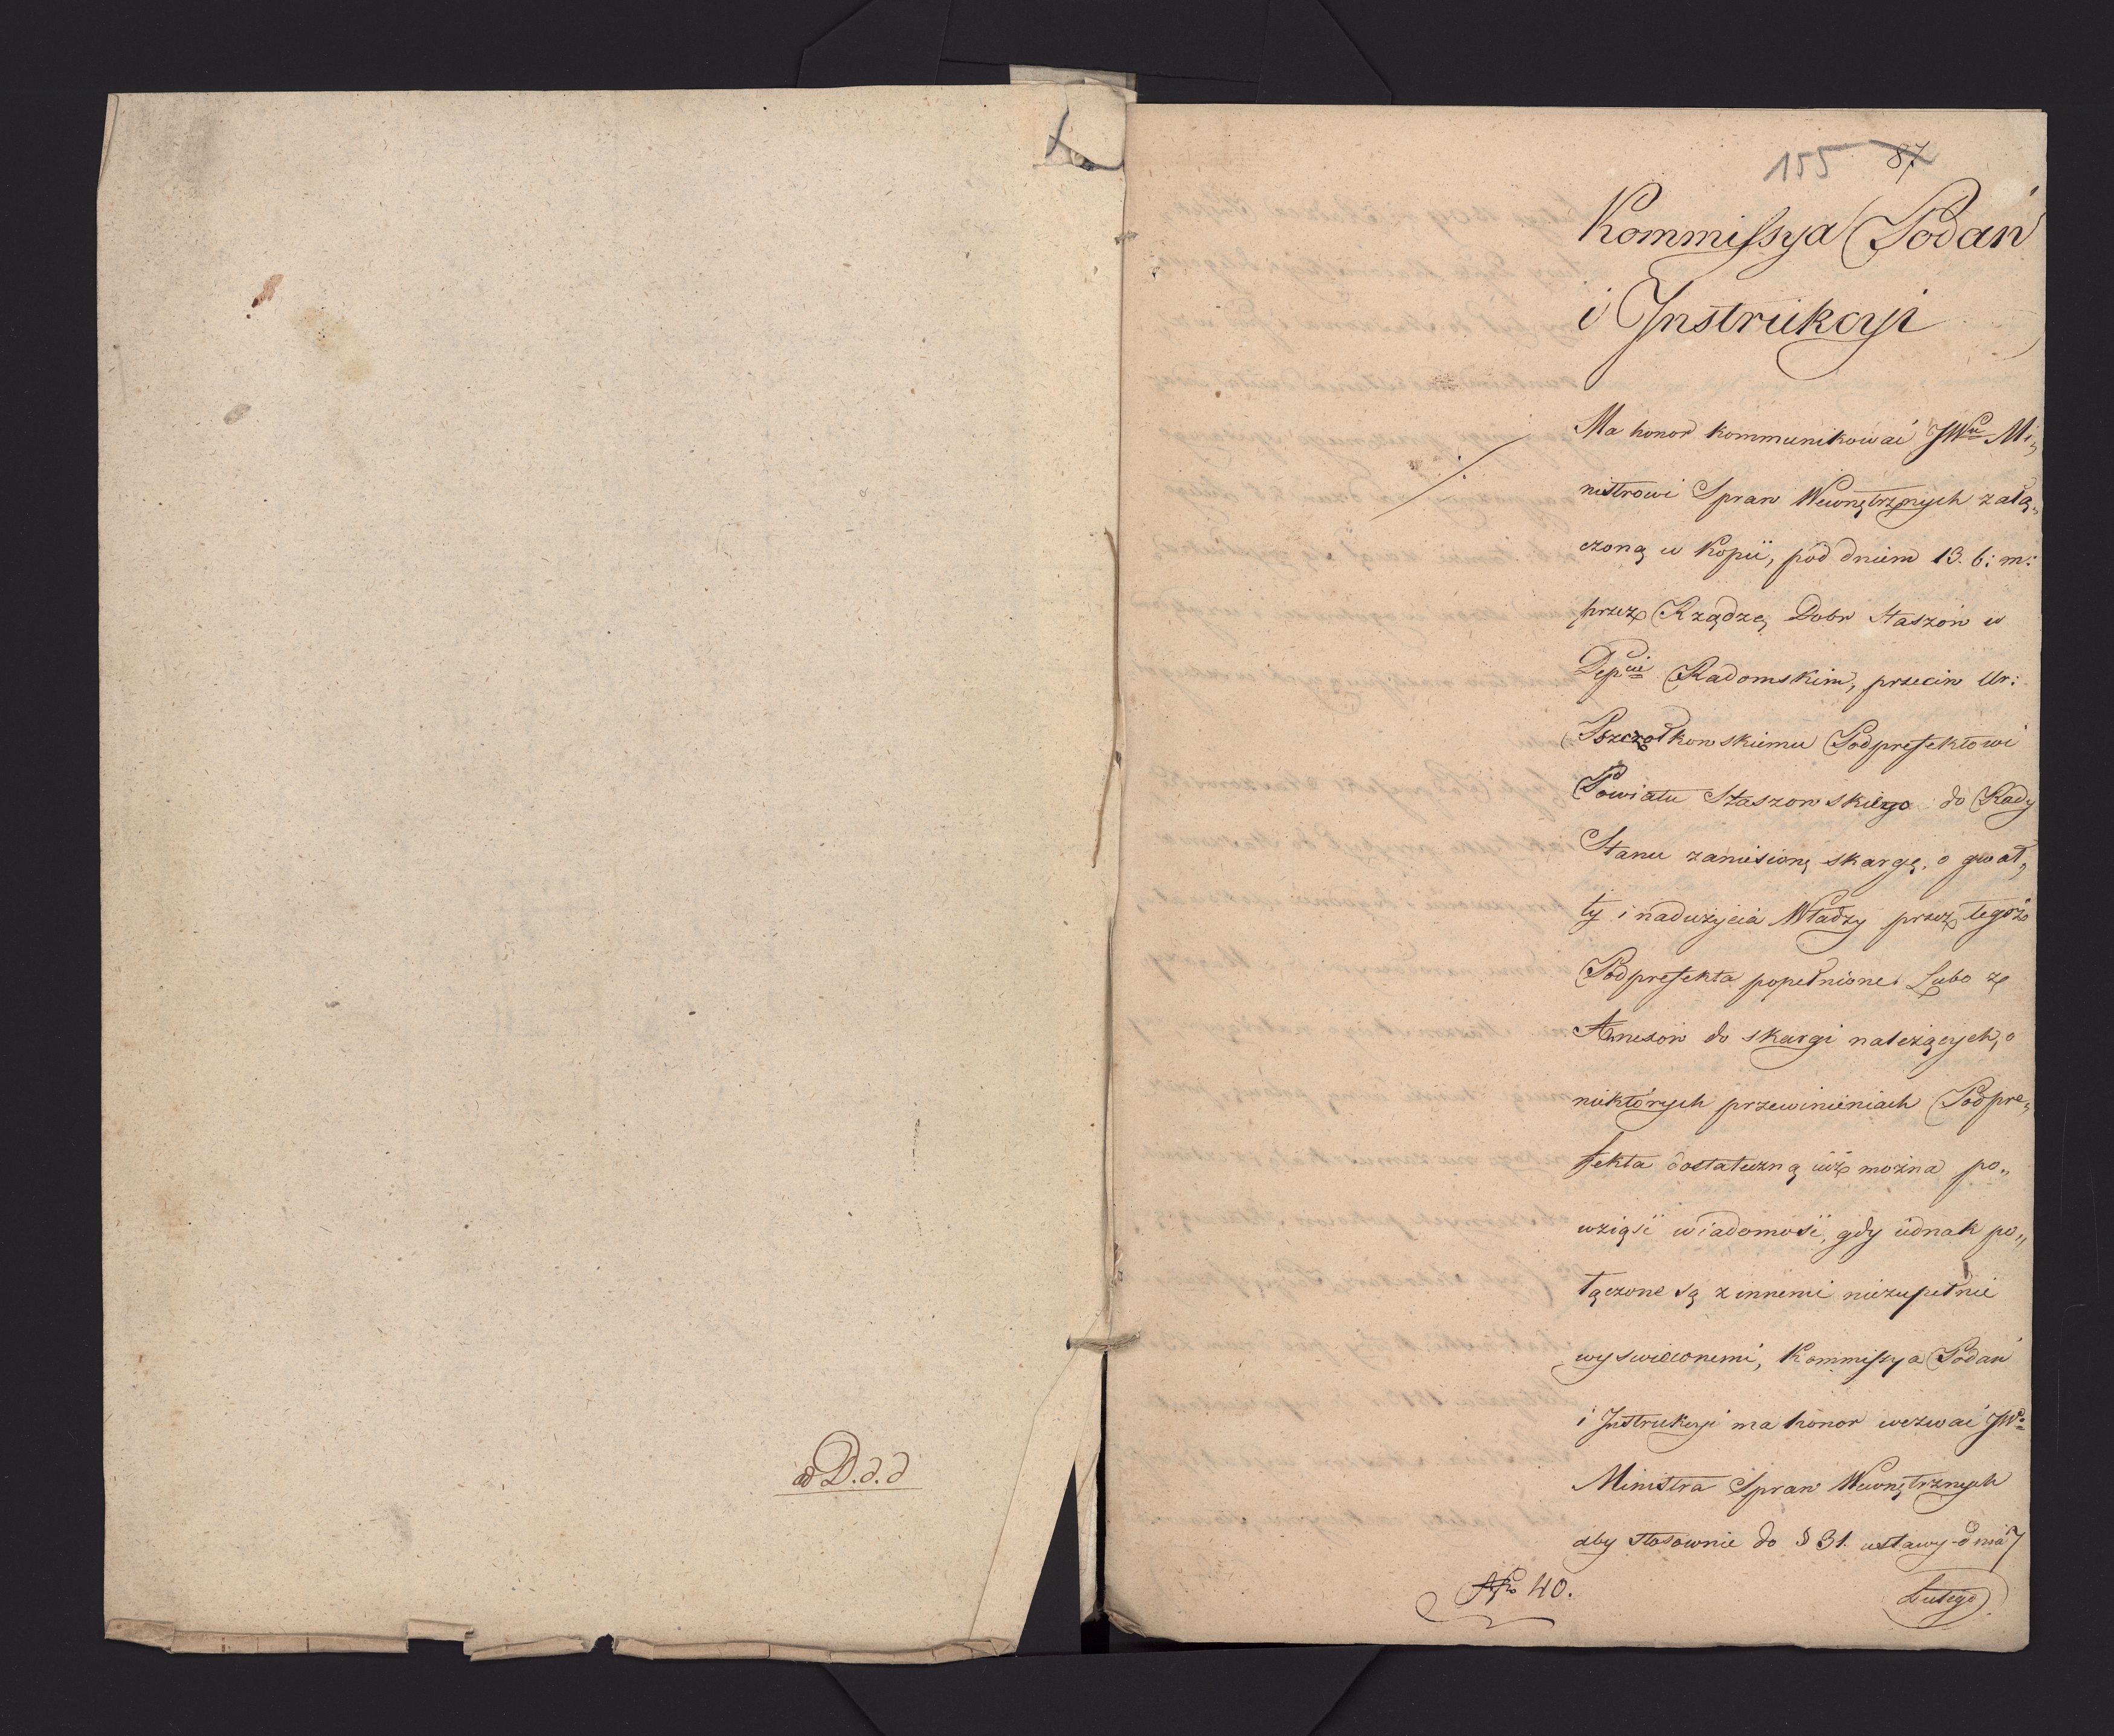 ad D.d.d
155 87.
Kommissya Podań
i Instrukcyi
Ma honor kommunikować JWu Mi„
nistrowi Spraw Wewnętrznych załą„
czoną w Kopii, pod dniem 13. b: m:
przez Rządzcę Dobr Staszów w
Depcie Radomskim, przeciw Ur:
Pszczołkowskiemu Podprefektowi
Powiatu Staszowskiego do Rady
Stanu zaniesioną skargę, o gwał„
ty i nadużycia Władzy przez tegoż
Podprefekta popełnione. Lubo z
Annexow do skargi należących, o
niektórych przewinieniach Podpre„
fekta dostateczną iuż można po„
wziąść wiadomość, gdy iednak po„
łączone są z innemi niezupełnie
wyswieconemi, Kommissya Podań
i Instrukcyi ma honor wezwać JW.
Ministra Spraw Wewnętrznych
aby stosownie do § 31. ustawy dnia 7
No 40.
Lutego